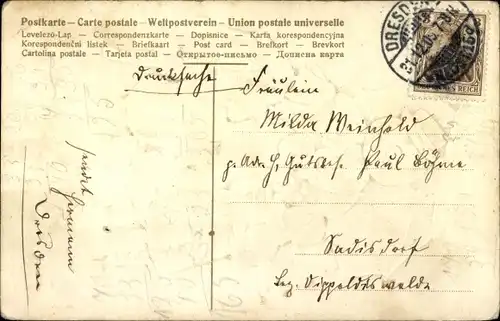 Postkarte – Carte postale – Weltpostverein – Union postale universelle
Levelező-Lap – Correspondenzkarte – Dopisnice – Karta korespondencyjna
Korespondenční lístek – Briefkaart – Post card – Brefkort – Brevkort
Cartolina postale – Tarjeta postal – Открытое-письмо – Дописна карта
DRESDEN
REICH
Drucksache
Fräulein
Milda Weinhold
p. Adr. H. Gutsbes. Paul Böhme
Sadisdorf
Bez. Dippoldiswalde
sendet
Hermann
Dresden